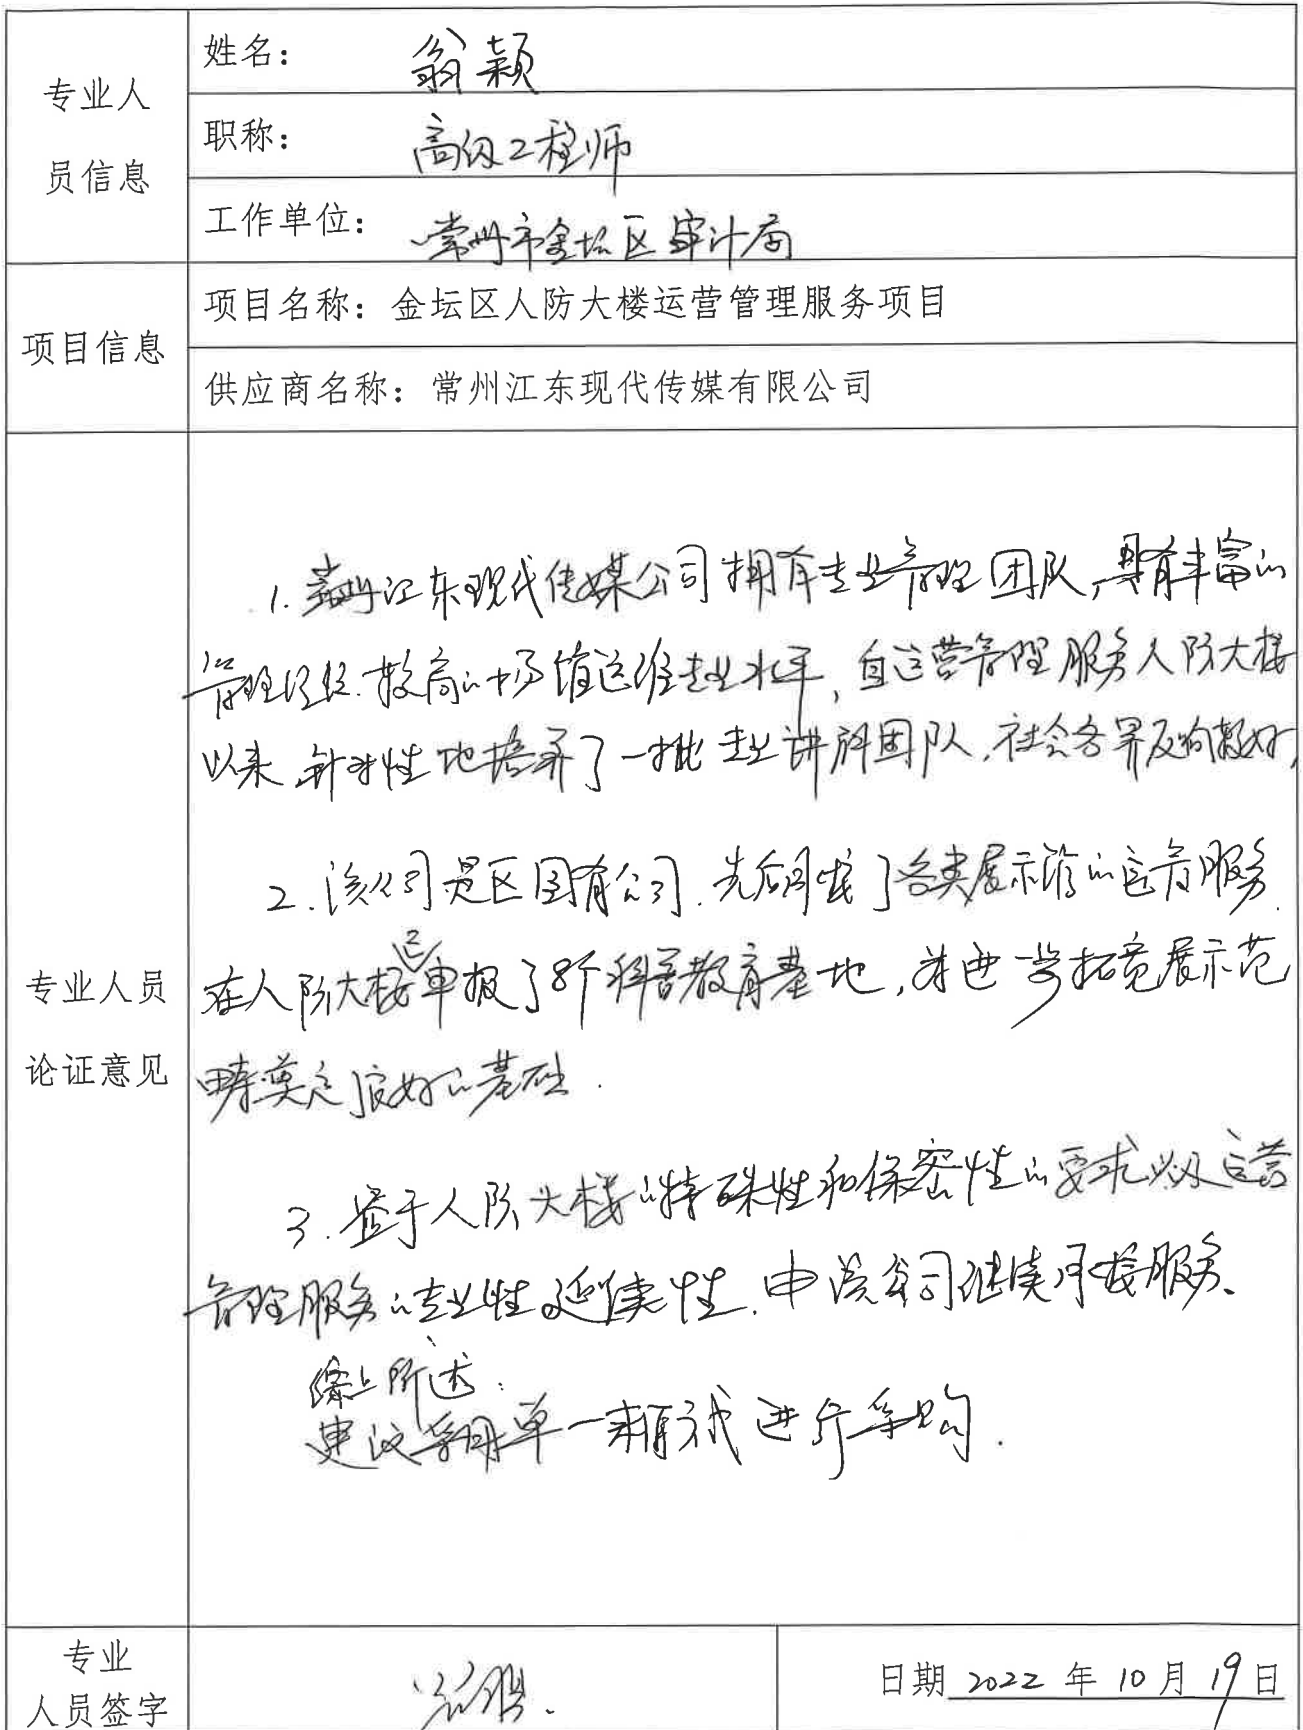 专业人
员信息
姓名：翁颖
职称：高级工程师
工作单位：常州市金坛区审计局
项目信息
项目名称：金坛区人防大楼运营管理服务项目
供应商名称：常州江东现代传媒有限公司
专业人员
论证意见
1. 常州江东现代传媒公司拥有专业管理团队，具有丰富的
管理经验、较高的场馆运维专业水平，自运营管理服务人防大楼
以来，针对性地培养了一批专业讲解团队，社会各界反响较好，
2. 该公司是区国有公司，先后承接了各类展示馆的运营服务
在人防大楼已申报了8个科普教育基地，为进一步拓宽展示范
畴奠定了良好的基础．
3. 鉴于人防大楼的特殊性和保密性的要求以及运营
管理服务的专业性延续性，由该公司继续承接服务。
综上所述：
建议采用单一来源方式进行采购．
专业
人员签字
日期 2022 年 10 月 19 日